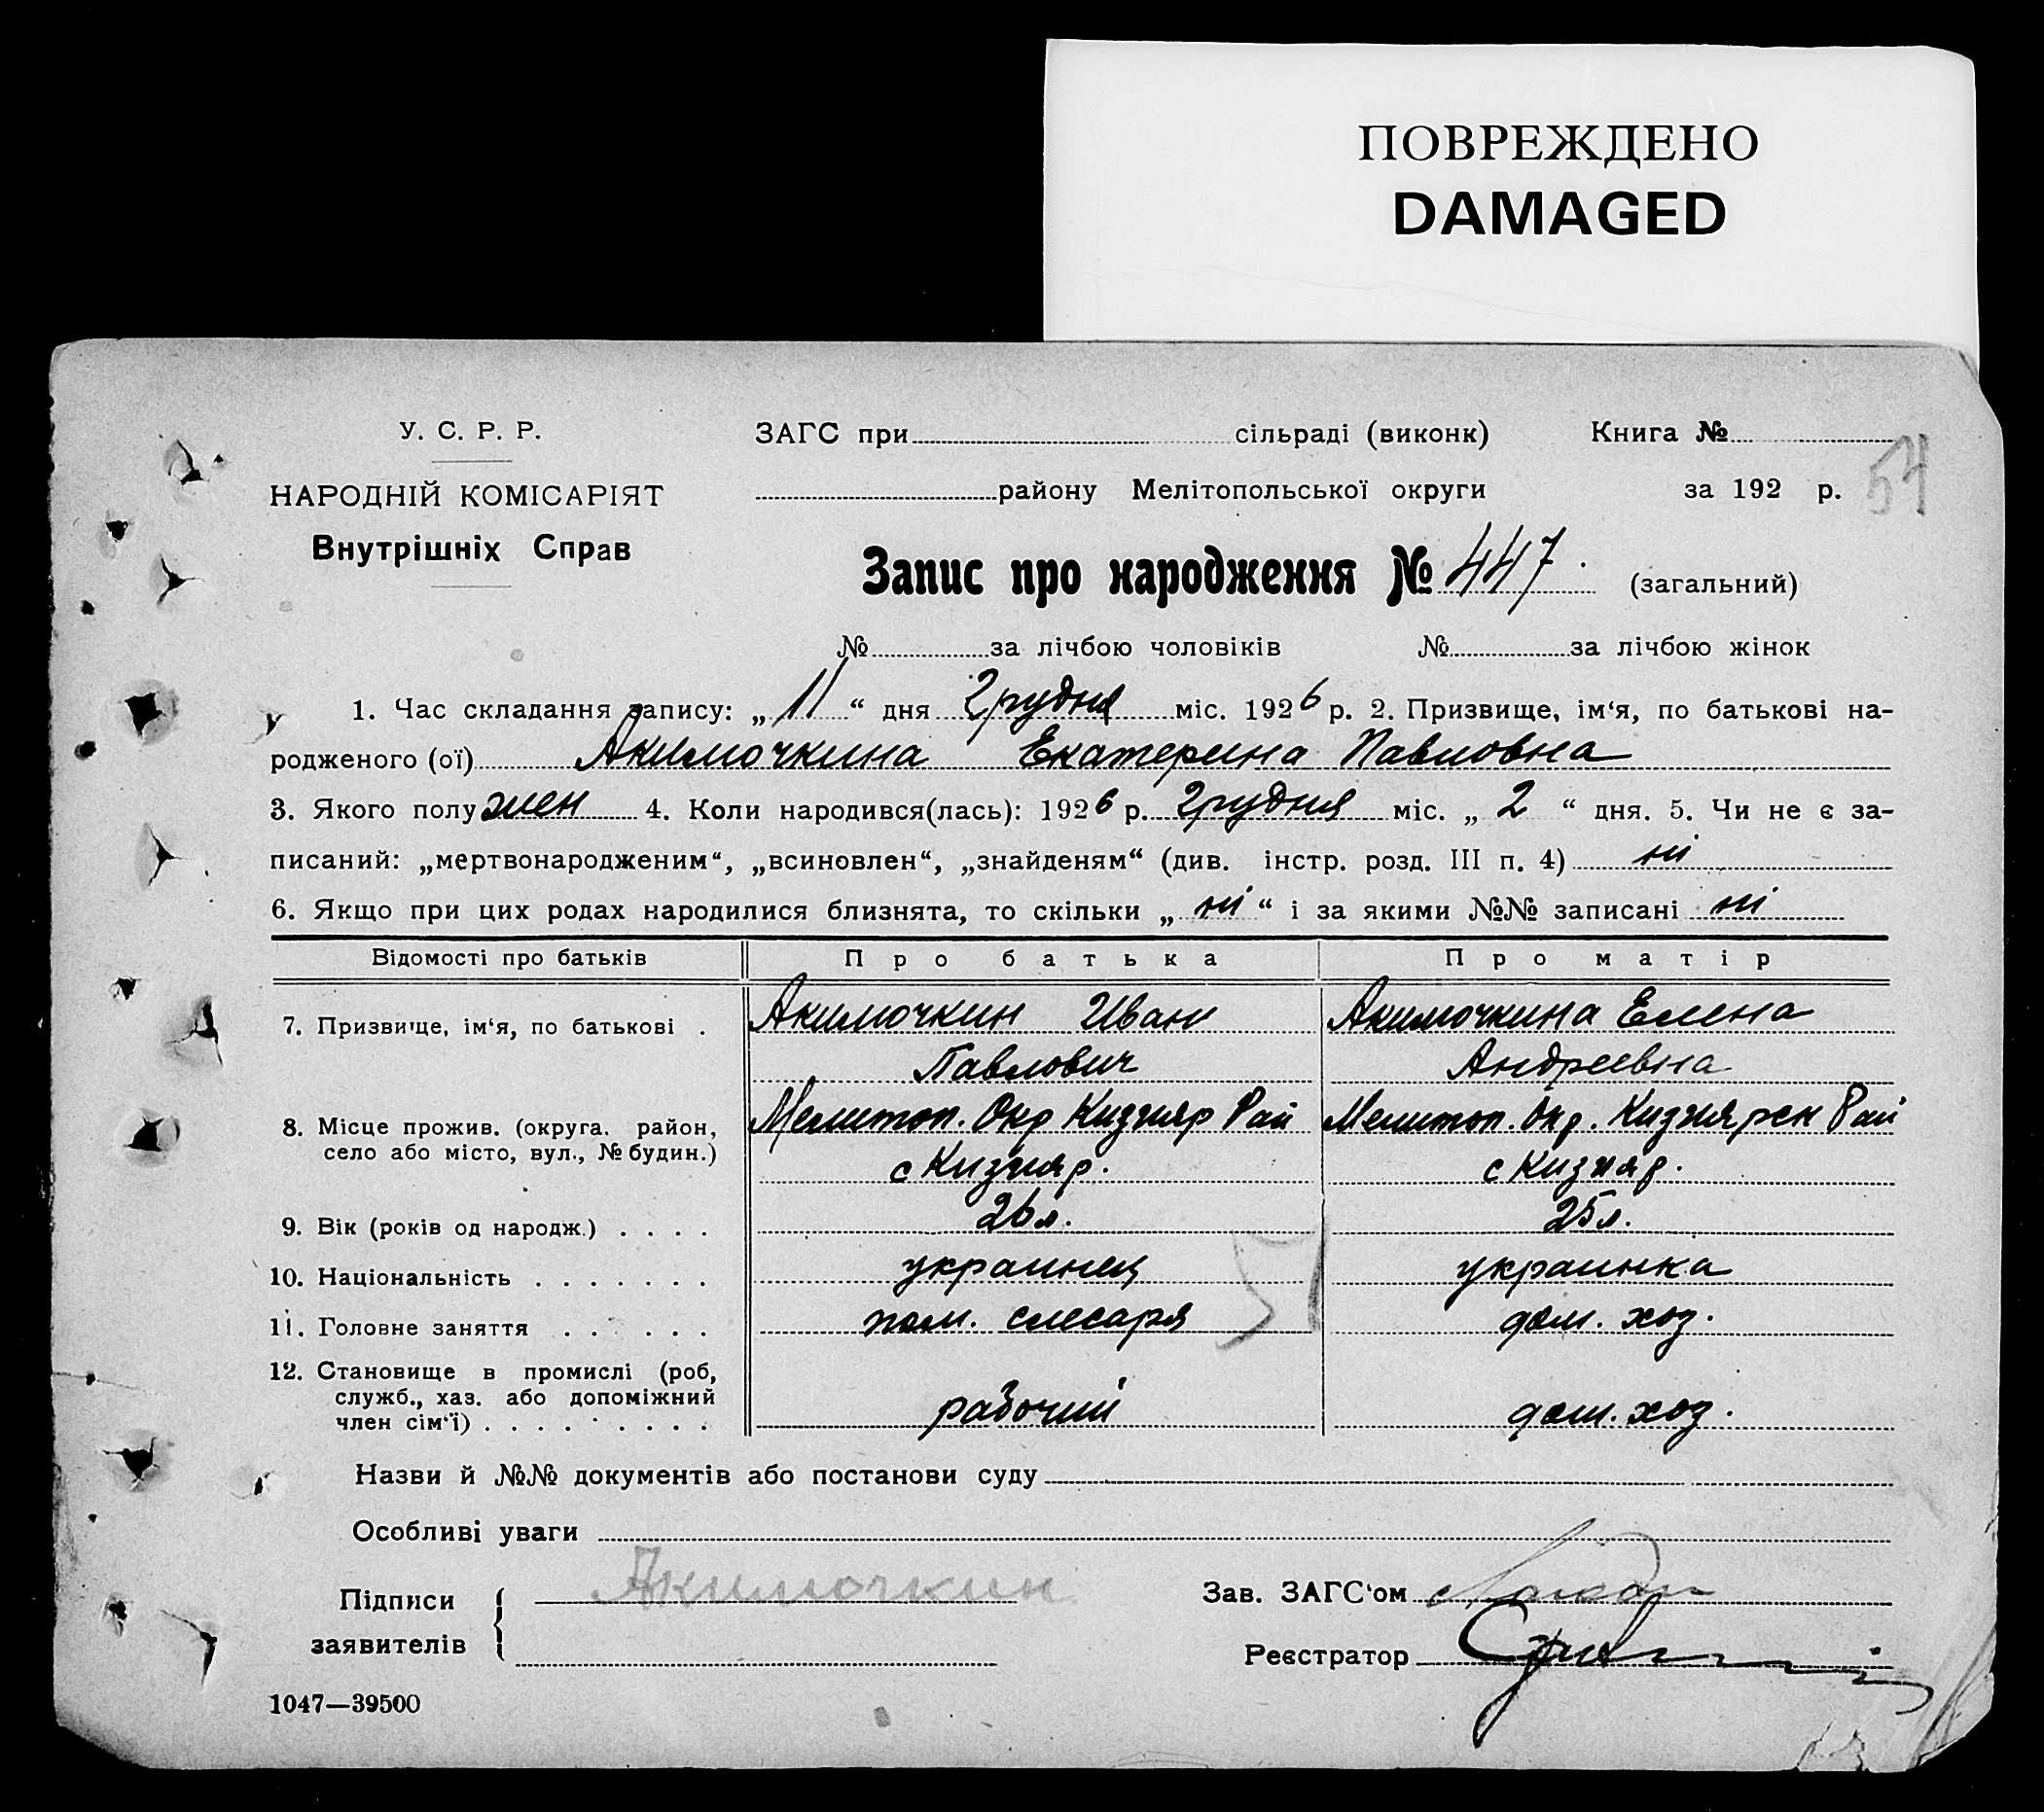 ПОВРЕЖДЕНО
DAMAGED
У. С. Р. Р.
НАРОДНІЙ КОМІСАРІЯТ
Внутрішніх Справ
ЗАГС при сільраді (виконк) Книга №
району Мелітопольської округи за 192 р.
54
Запис про народження № 447. (загальний)
№ за лічбою чоловіків № за лічбою жінок
1. Час складання запису: „11“ дня Грудня міс. 1926 р. 2. Призвище, ім‘я, по батькові на-
родженого (ої) Акимочкина Екатерина Павловна
3. Якого полу жен 4. Коли народився(лась): 1926 р. Грудня міс. „2“ дня. 5. Чи не є за-
писаний: „мертвонародженим“, „всиновлен“, „знайденям“ (див. інстр. розд. III п. 4) ні
6. Якщо при цих родах народилися близнята, то скільки „ні“ і за якими №№ записані ні
Відомості про батьків Про батька Про матір
7. Призвище, ім‘я, по батькові . Акимочкин Иван Акимочкина Елена
Павлович Андреевна
8. Місце прожив. (округа. район, Мелитоп. Окр Кизияр Рай Мелитоп. Окр. Кизиярск Рай
село або місто, вул., № будин.) с Кизияр. с Кизияр.
9. Вік (років од народж.) . . . . 26 л. 25 л.
10. Національність . . . . . . . украинец украинка
11. Головне заняття . . . . . . пом. слесаря дом. хоз.
12. Становище в промислі (роб,
служб., хаз. або допоміжний рабочий дом. хоз.
член сім‘ї) . . . . . . . . .
Назви й №№ документів або постанови суду
Особливі уваги
Підписи Акимочкин Зав. ЗАГС‘ом
заявителів Реєстратор
1047—39500